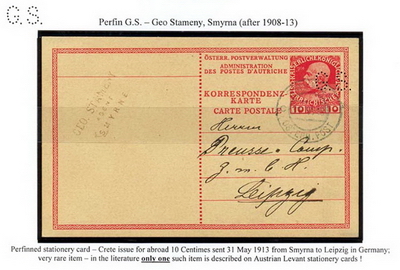 G.S.
Perfin G.S. – Geo Stameny, Smyrna (after 1908-13)
ÖSTERR. POSTVERWALTUNG
ADMINISTRATION
DES POSTES D'AUTRICHE
KORRESPONDENZ-
KARTE
CARTE POSTALE
10 10
GEO. STAMENY
SMYRNE
Herrn
Preusse & Comp.
G. m. b. H.
Leipzig
Perfinned stationery card – Crete issue for abroad 10 Centimes sent 31 May 1913 from Smyrna to Leipzig in Germany;
very rare item – in the literature only one such item is described on Austrian Levant stationery cards !